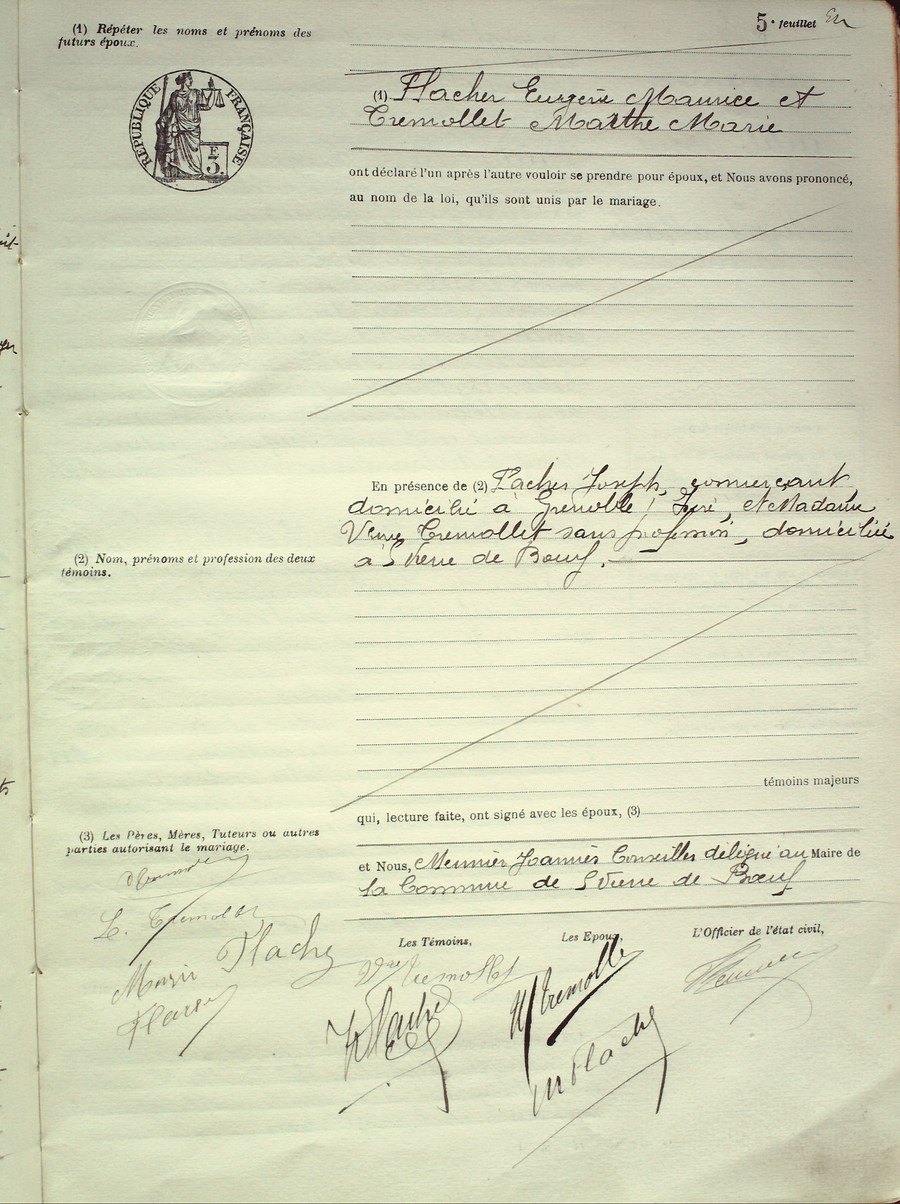 5e feuillet
(1) Répéter les noms et prénoms des
futurs époux.
RÉPUBLIQUE FRANÇAISE
F
3.
(1) Flacher Eugène Maurice et
Tremollet Marthe Marie
ont déclaré l'un après l'autre vouloir se prendre pour époux, et Nous avons prononcé,
au nom de la loi, qu'ils sont unis par le mariage.
En présence de (2) Flacher Joseph, commerçant
domicilié à Grenoble, et Madame
Veuve Tremollet sans profession, domiciliée
à St Pierre de Bœuf.
(2) Nom, prénoms et profession des deux
témoins.
témoins majeurs
qui, lecture faite, ont signé avec les époux, (3)
(3) Les Pères, Mères, Tuteurs ou autres
parties autorisant le mariage.
et Nous, Meunier Joannès Conseiller délégué au Maire de
la Commune de St Pierre de Bœuf
L. Tremollet
Les Témoins,
Les Epoux,
L'Officier de l'état civil,
Marie Flacher
Vve Tremollet
M Tremollet
Flacher
M Flacher